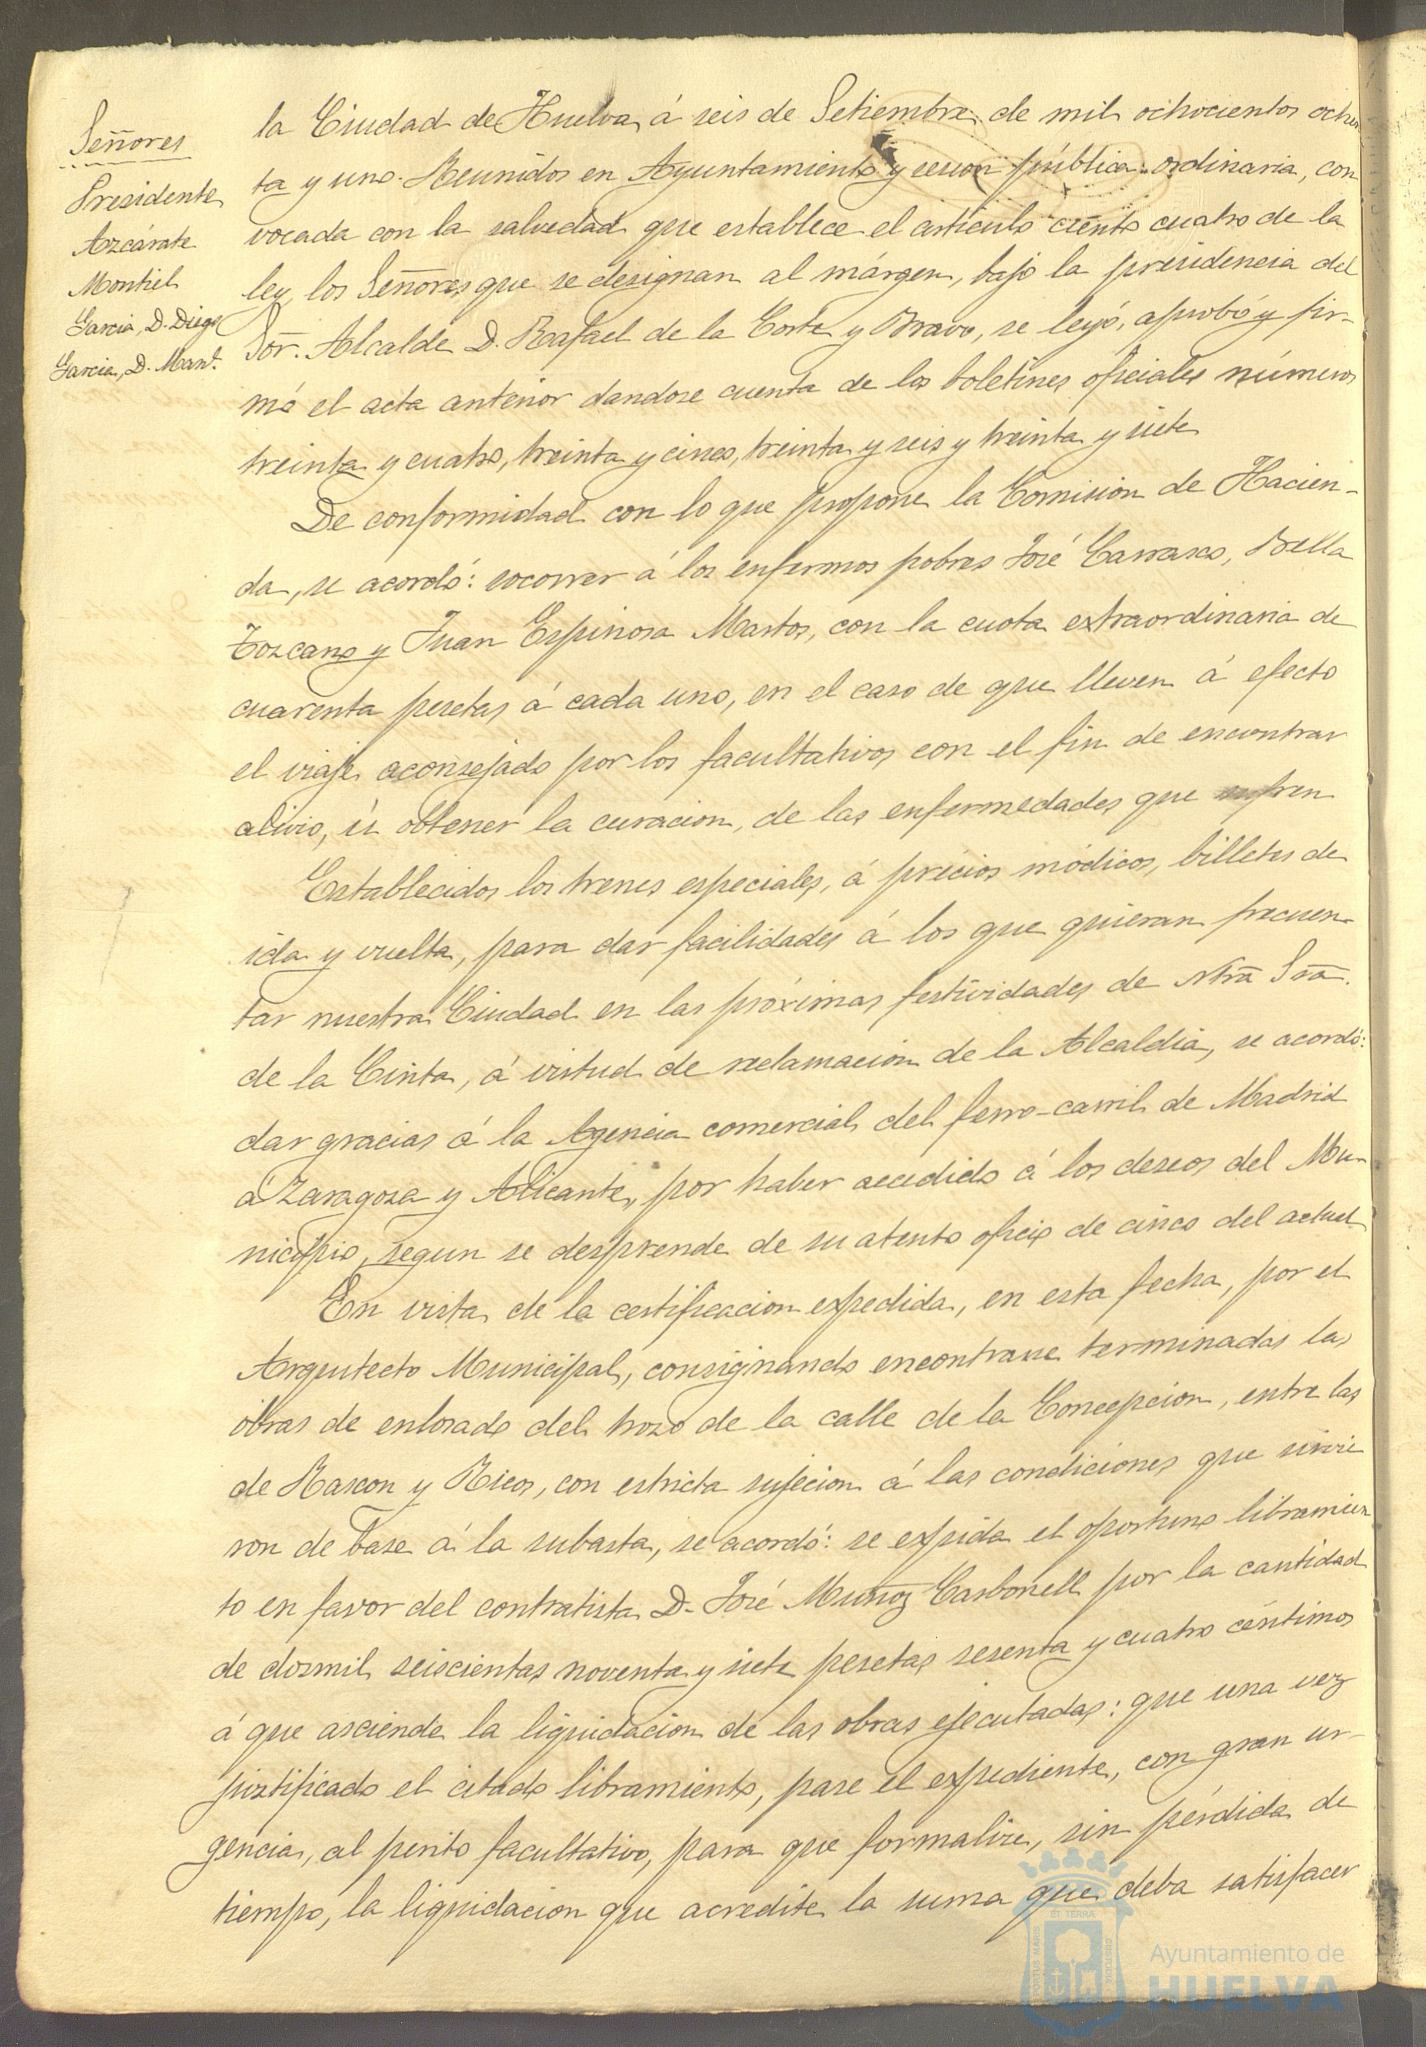 Señores
Presidente
Azcárate
Montiel
Garcia, D. Diego
Garcia, D. Manl.
la Ciudad de Huelva, á seis de Setiembre de mil ochocientos ochen
ta y uno. Reunidos en Ayuntamiento y sesion pública ordinaria, con
vocada con la salvedad que establece el artículo ciento cuatro de la
ley, los Señores que se designan al márgen, bajo la presidencia del
Sor. Alcalde D. Rafael de la Corte y Bravo, se leyó, aprobó y fir-
mó el acta anterior dandose cuenta de los boletines oficiales números
treinta y cuatro, treinta y cinco, treinta y seis y treinta y siete
De conformidad con lo que propone la Comision de Hacien-
da, se acordó: socorrer á los enfermos pobres José Carrasco, Bella
Tozcano y Juan Espinosa Martos, con la cuota extraordinaria de
cuarenta pesetas á cada uno, en el caso de que lleven á efecto
el viaje aconsejado por los facultativos con el fin de encontrar
alivio, ú obtener la curacion, de las enfermedades que sufren
Establecidos los trenes especiales, á précios módicos, billetes de
ida y vuelta, para dar facilidades á los que quieran frecuen-
tar nuestra Ciudad en las próximas festividades de Ntra Sra.
de la Cinta, á virtud de reclamacion de la Alcaldia, se acordó:
dar gracias á la Agencia comercial del ferro-carril de Madrid
á Zaragoza y Alicante, por haber accedido á los deseos del Mu-
nicipio, segun se desprende de su atento oficio de cinco del actual
En vista de la certificacion expedida, en esta fecha, por el
Arquitecto Municipal, consignando encontrarse terminadas las
obras de enlosado del trozo de la calle de la Concepcion, entre las
de Rascon y Ricos, con estricta sujecion á las condiciones que sirvie
ron de base á la subasta, se acordó: se expida el oportuno libramien
to en favor del contratista D. José Muñoz Carbonell por la cantidad
de dosmil seiscientas noventa y siete pesetas sesenta y cuatro céntimos
á que asciende la liquidacion de las obras ejecutadas: que una vez
justificado el citado libramiento, pase el expediente, con gran ur-
gencia, al perito facultativo, para que formalize, sin pérdida de
tiempo, la liquidacion que acredite la suma que deba satisfacer
Ayuntamiento de
HUELVA